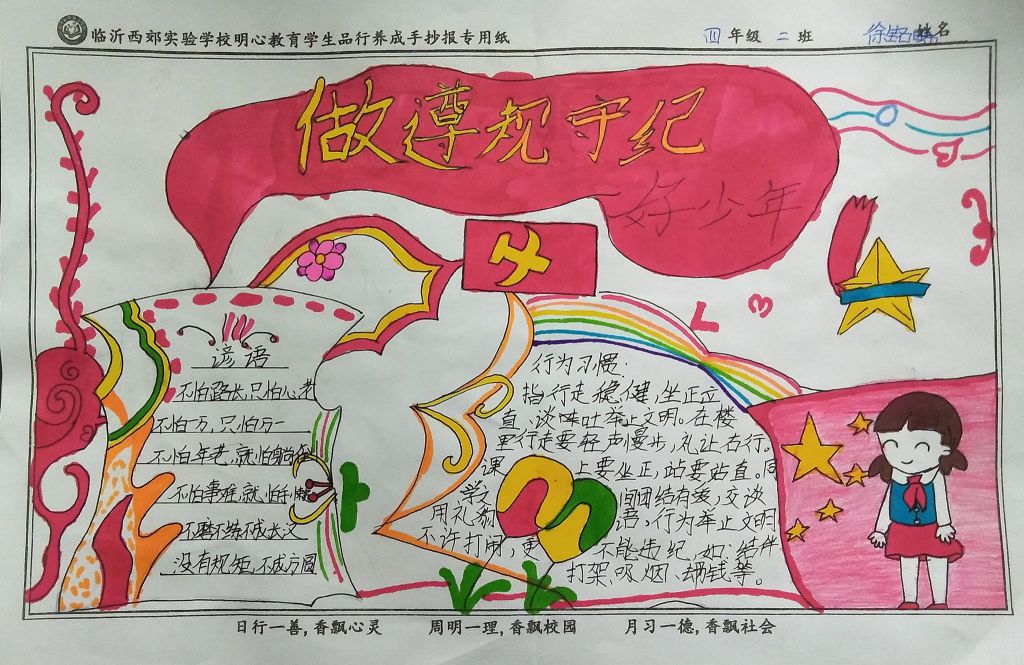 临沂西郊实验学校明心教育学生品行养成手抄报专用纸
四年级 二班
姓名
做遵规守纪
好少年
谚语
不怕路长,只怕心老
不怕一万,只怕万一
不怕年老,就怕躺倒
不怕事难,就怕手懒
不磨不练不成长汉
没有规矩,不成方圆
行为习惯:
指行走稳健,坐正立
直、谈吐举止文明。在楼
里行走要轻声慢步,礼让右行。
课上要坐正,站要站直。同
学之间团结有爱,交谈
用礼貌语,行为举止文明
不许打闹,更不能违纪,如:结伴
打架、吸烟、
钱等。
日行一善,香飘心灵 周明一理,香飘校园 月习一德,香飘社会